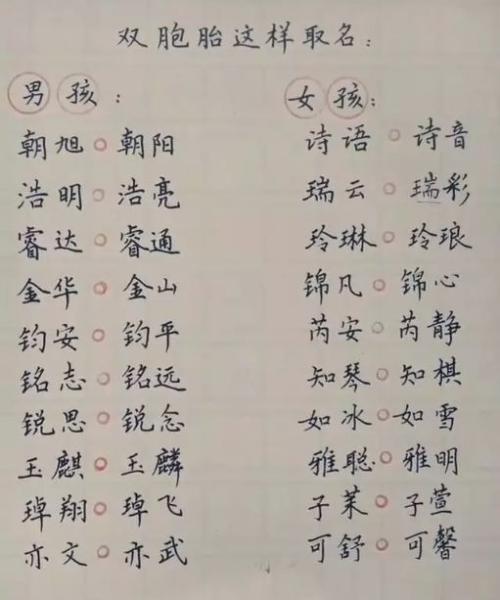 双胞胎这样取名：
男孩：
朝旭。朝阳
浩明。浩亮
睿达。睿通
金华。金山
钧安。钧平
铭志。铭远
锐思。锐念
玉麒。玉麟
瑋翔。瑋飞
亦文。亦武
女孩：
诗语。诗音
瑞云。瑞彩
玲琳。玲琅
锦凡。锦心
芮安。芮静
知琴。知棋
如冰。如雪
雅聪。雅明
子茱。子萱
可舒。可馨